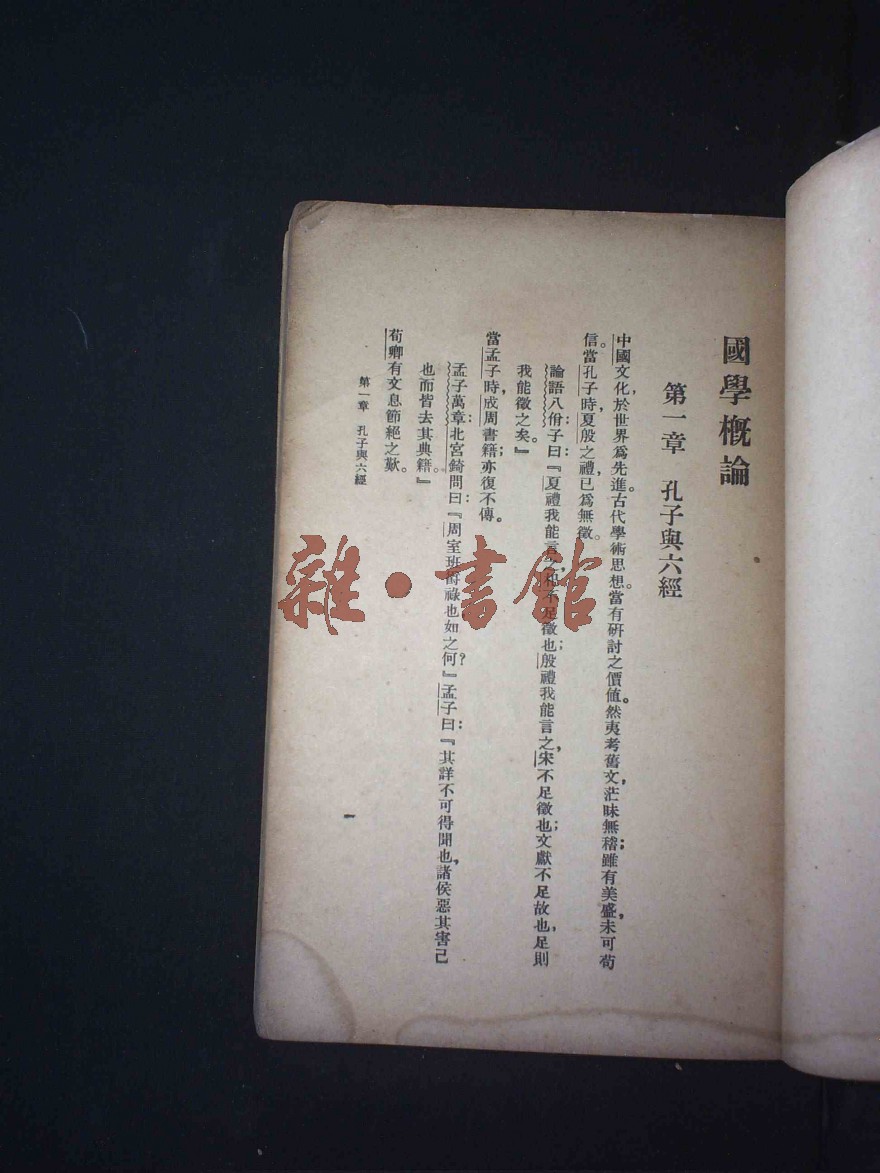 國學概論
第一章 孔子與六經
中國文化,於世界爲先進。古代學術思想,當有研討之價值。然夷考舊文,茫昧無稽;雖有美盛,未可苟
信。當孔子時,夏殷之禮,已爲無徵。
論語八佾:子曰:『夏禮我能言之,杞不足徵也;殷禮我能言之,宋不足徵也;文獻不足故也,足則
我能徵之矣。』
當孟子時,成周書籍,亦復不傳。
孟子萬章:北宮錡問曰:『周室班爵祿也如之何?』孟子曰:『其詳不可得聞也,諸侯惡其害己
也而皆去其典籍。』
荀卿有文息節絕之歎。
第一章 孔子與六經
一
雜·書館